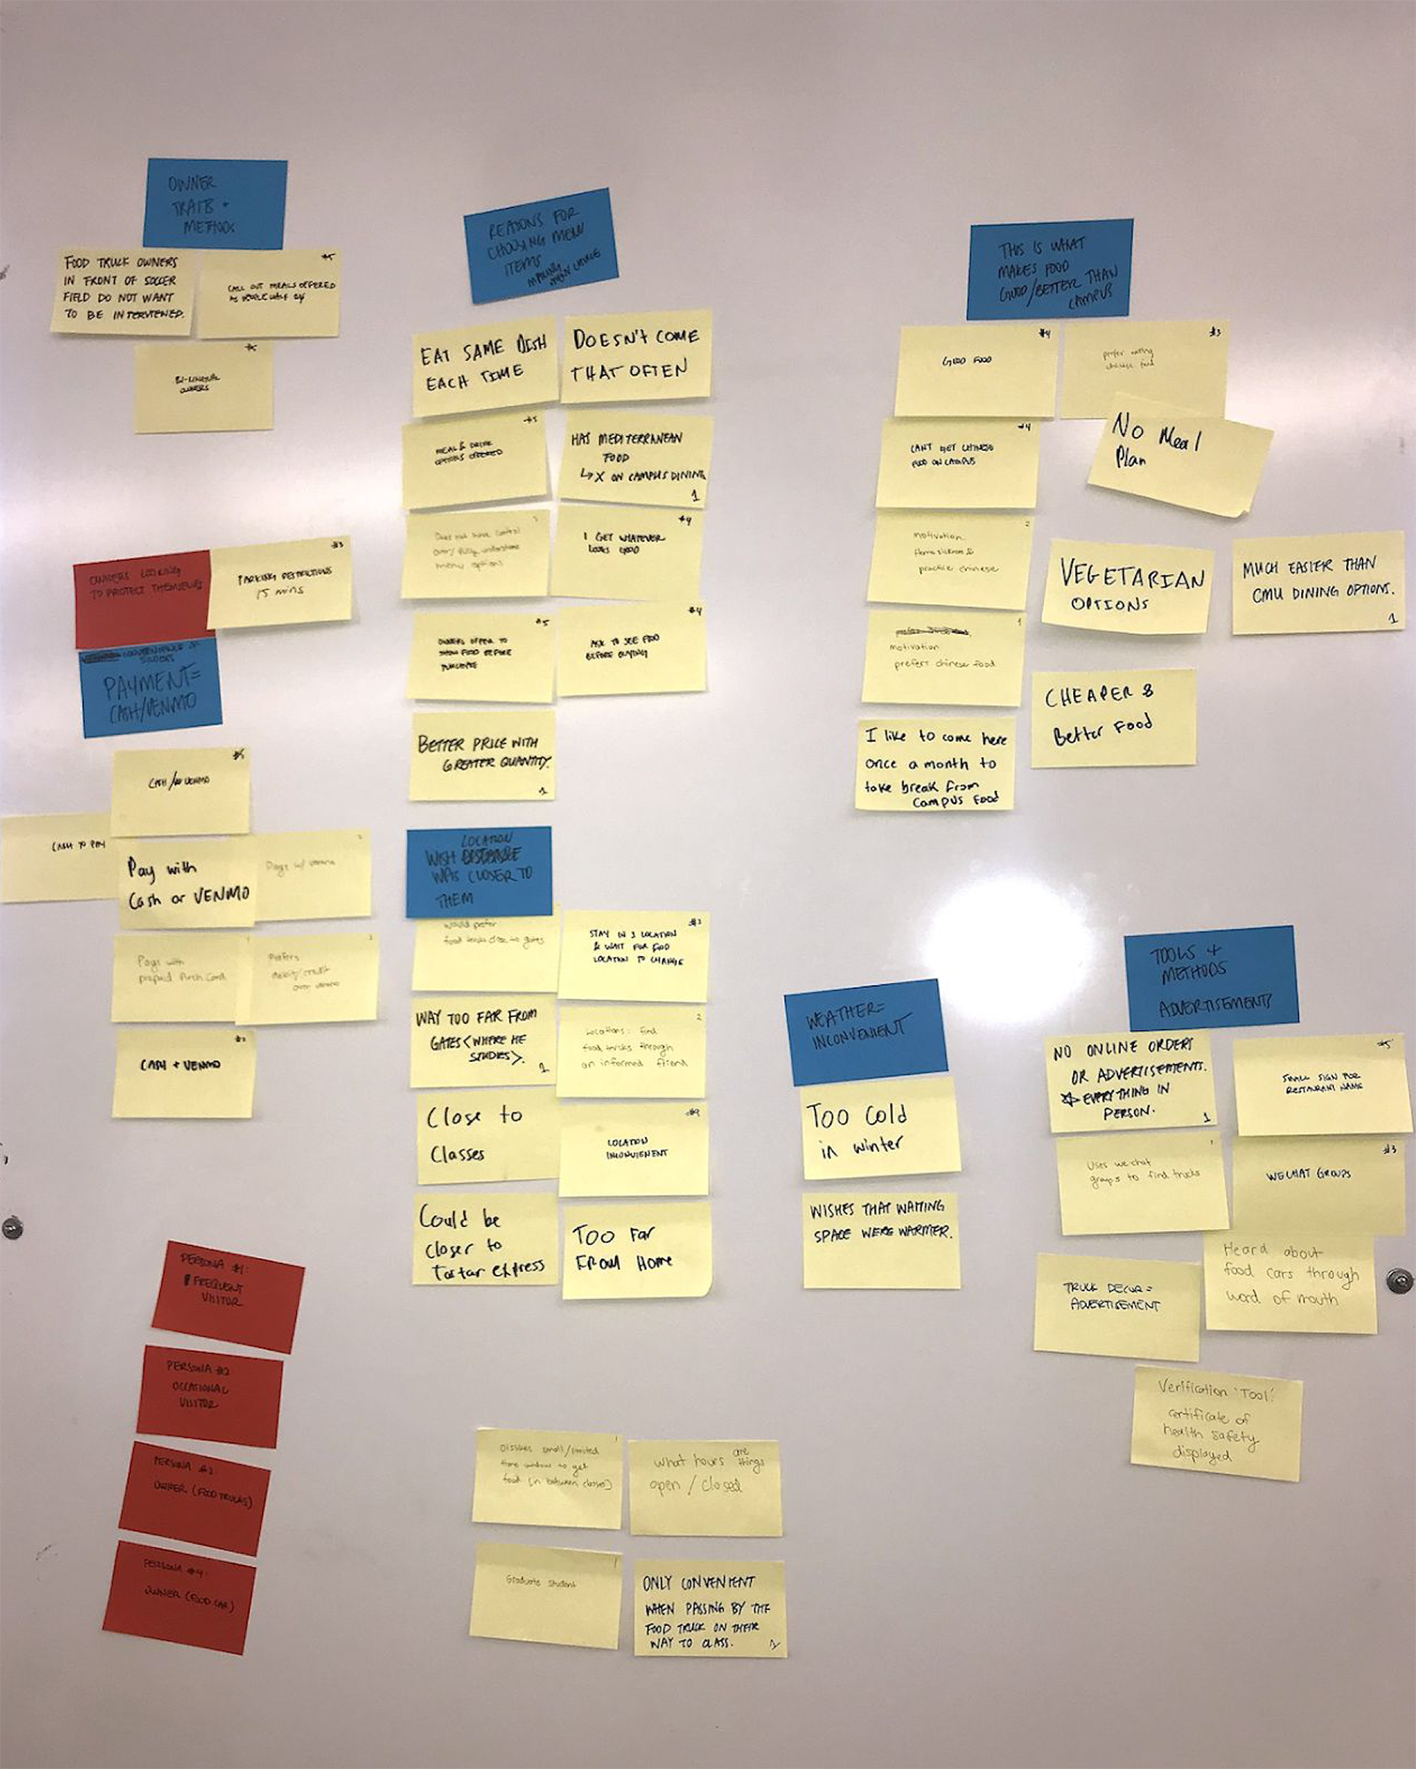 OWNER
TRAITS +
METHODS
FOOD TRUCK OWNERS
IN FRONT OF SOCCER
FIELD DO NOT WANT
TO BE INTERVIENED.
#5
CALL OUT MEALS OFFERED
AS PEOPLE WALK BY
BI-LINGUAL
OWNERS
OWNERS LOOKING
TO PROTECT THEMSELVES
#3
PARKING RESTRICTIONS
15 MINS
PAYMENT=
CASH/VENMO
#5
CASH /or VENMO
CASH TO PAY
Pay with
Cash or VENMO
2
Pays w/ venmo
Pays with
prepaid Card
Prefers
debit/credit
over venmo
CASH + VENMO
PERSONA #1:
FREQUENT
VISITOR
PERSONA #2
OCCATIONAL
VISITOR
PERSONA #3:
OWNER (FOOD TRUCKS)
PERSONA #4:
OWNER (FOOD CAR)
REASONS FOR
CHOOSING MENU
ITEMS
MAKING
MENU CHOICE
EAT SAME DISH
EACH TIME
DOESN'T COME
THAT OFTEN
#5
MEAL & DRINK
OPTIONS OFFERED
HAS MEDITERRANEAN
FOOD
↳ X ON CAMPUS DINING
1
Does not have control
over/ fully understand
menu options
#4
I GET WHATEVER
LOOKS GOOD
#5
OWNERS OFFER TO
SHOW FOOD BEFORE
PURCHASE
#4
ASK TO SEE FOOD
BEFORE BUYING
BETTER PRICE WITH
GREATER QUANTITY.
1
LOCATION
WISH
WAS CLOSER TO
THEM
would prefer
food trucks close to gates
#3
STAY IN 1 LOCATION
& WAIT FOR FOOD
LOCATION TO CHANGE
WAY TOO FAR FROM
GATES <WHERE HE
STUDIES>.
1
2
Locations: find
food trucks through
an informed friend
Close to
Classes
#4
LOCATION
INCONVIENENT
Could be
closer to
Tartar express
TOO Far
From Home
1
Dislikes small/limited
time window to get
food (in between classes)
what hours are things
open / closed
1
Graduate student
ONLY CONVENIENT
WHEN PASSING BY THE
FOOD TRUCK ON THEIR
WAY TO CLASS.
1
THIS IS WHAT
MAKES FOOD
GOOD/BETTER THAN
CAMPUS
#4
GOOD FOOD
#3
prefer eating
chinese food
#4
CANT GET CHINESE
FOOD ON CAMPUS
No Meal
Plan
2
motivation
Home sickness &
practice chinese
VEGETARIAN
OPTIONS
MUCH EASIER THAN
CMU DINING OPTIONS.
1
1
motivation
prefers chinese food
CHEAPER &
Better Food
I like to come here
once a month to
take break from
campus food
WEATHER=
INCONVENIENT
TOO Cold
in winter
WISHES THAT WAITING
SPACE WERE WARMER.
TOOLS +
METHODS
ADVERTISEMENTS
NO ONLINE ORDERS
OR ADVERTISEMENTS.
EVERYTHING IN
PERSON.
1
#5
SMALL SIGN FOR
RESTAURANT NAME
1
Uses wechat
groups to find trucks
#3
WECHAT GROUPS
TRUCK DECOR =
ADVERTISEMENT
Heard about
food cars through
word of mouth
Verification 'Tool':
certificate of
health safety
displayed